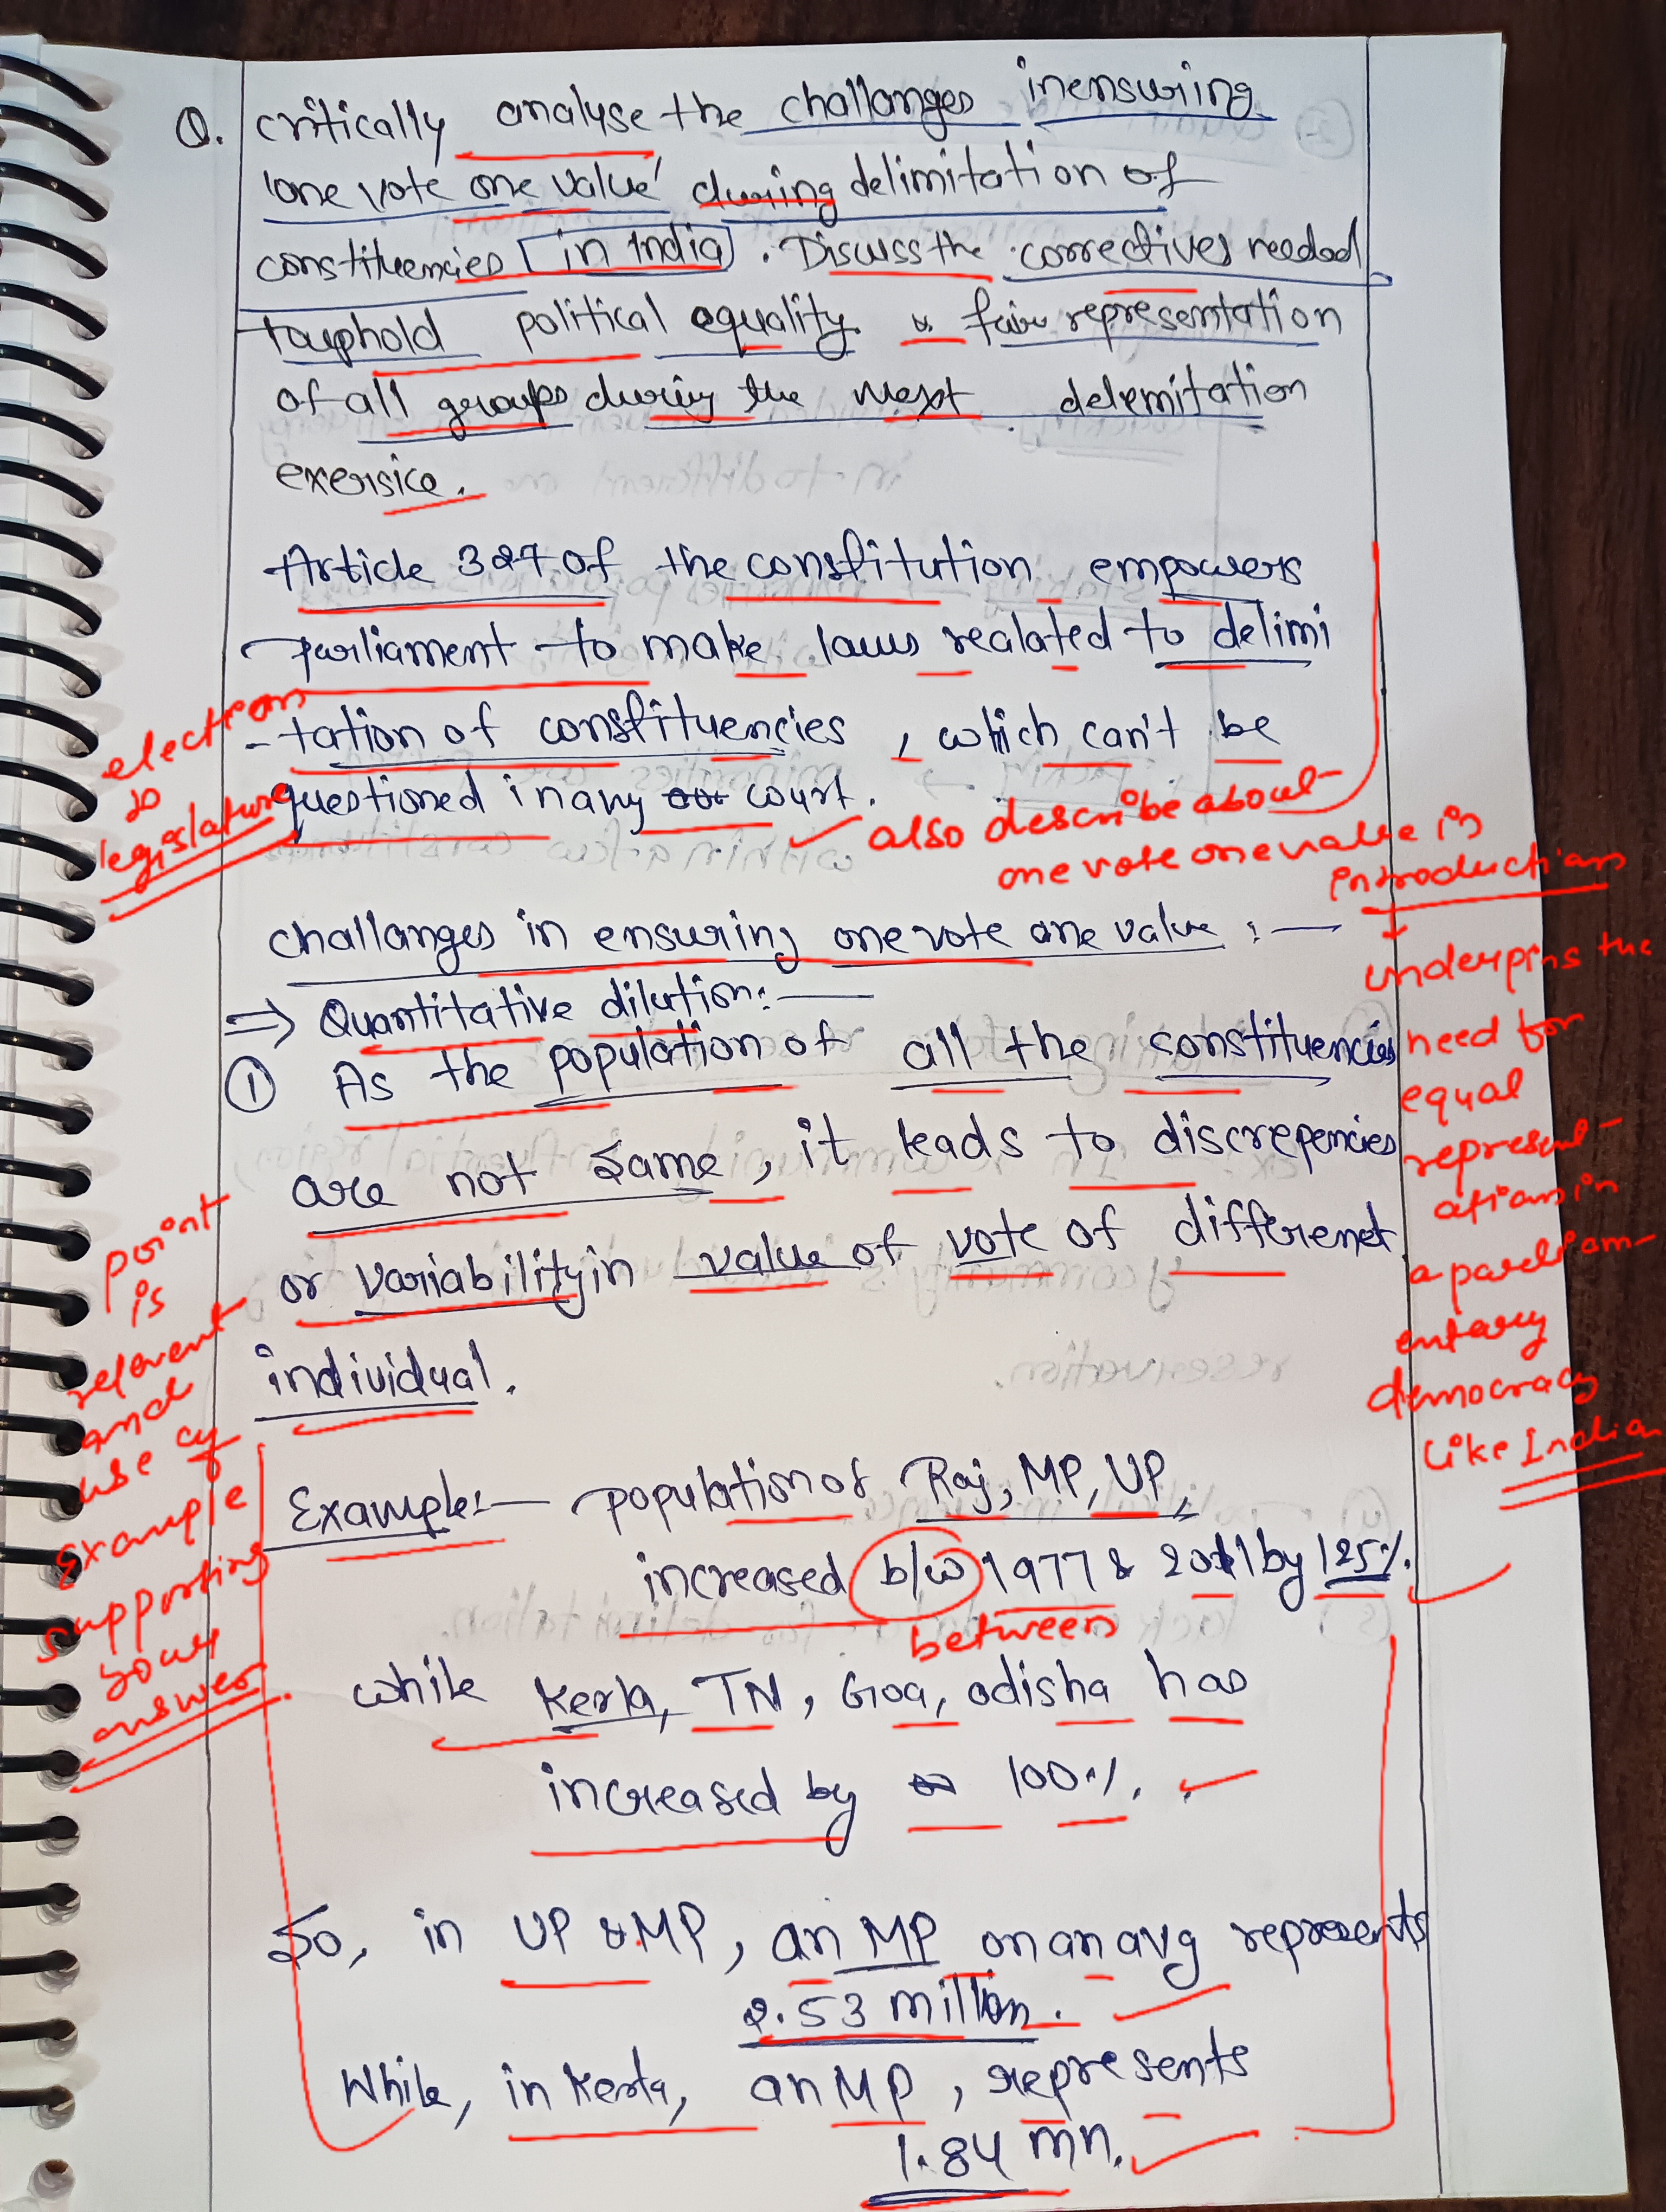 Q. critically analyse the challanges inensuring
'one vote one value' during delimitation of
constituencies in India. Discuss the correctives needed
touphold political equality & fair representation
of all groups during the next delemitation
exersice.
Article 327 of the constitution empowers
parliament to make laws realated to delimi
-tation of constituencies, which can't be
questioned in any court.
election
to
legislature
also describe about
one vote one value in
introduction
underpins the
need for
equal
represent-
ations in
a parliam-
entary
democracy
like India
challanges in ensuring one vote one value :—
⇒ Quantitative dilution:—
① As the population of all the constituencies
are not same, it leads to discrepencies
or variability in value of vote of differenet
individual.
point
is
relevent
and
use of
Example
supporting
your
answer.
Example:— population of Raj, MP, UP,
increased b/w 1977 & 2011 by 125%.
between
while Kerla, TN, Goa, odisha has
increased by 100%.
So, in UP & MP, an MP on an avg represents
2.53 million.
While, in Kerla, an MP, represents
1.84 mn.